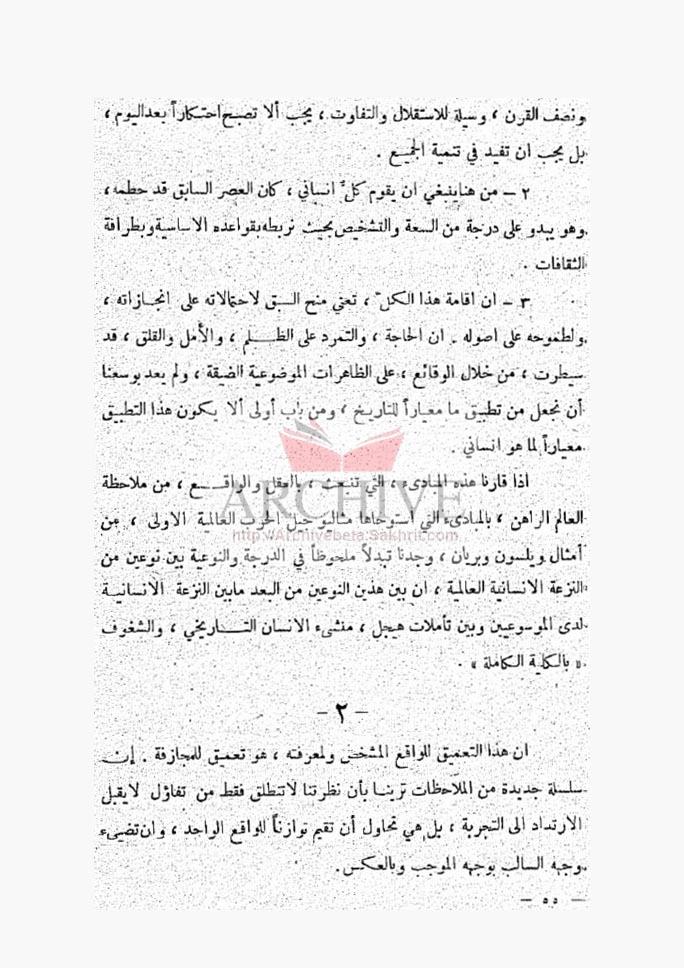 ونصف القرن ، وسيلة للاستقلال والتفاوت ، يجب ألا تصبح احتكاراً بعد اليوم ،
بل يجب ان تفيد في تنمية الجميع .
٢ – من هنا ينبغي ان يقوم كلٌّ انساني ، كان العصر السابق قد حطمه ،
وهو يبدو على درجة من السعة والتشخيص بحيث نربطه بقواعده الاساسية وبطرافة
الثقافات .
٣ – ان اقامة هذا الكلّ ، تعني منح السبق لاحتمالاته على انجازاته ،
ولطموحه على اصوله . ان الحاجة ، والتمرد على الظلم ، والأمل والقلق ، قد
سيطرت ، من خلال الوقائع ، على الظاهرات الموضوعية الضيقة ، ولم يعد بوسعنا
أن نجعل من تطبيق ما معياراً للتاريخ ، ومن باب أولى ألا يكون هذا التطبيق
معياراً لما هو انساني .
اذا قارنا هذه المبادىء ، التي تنبعث ، بالعقل والواقع ، من ملاحظة
العالم الراهن ، بالمبادىء التي استوحاها مثاليو جيل الحرب العالمية الاولى ، من
أمثال ويلسون وبريان ، وجدنا تبدلاً ملحوظاً في الدرجة والنوعية بين نوعين من
النزعة الانسانية العالمية ، ان بين هذين النوعين من البعد مابين النزعة الانسانية
لدى الموسوعيين وبين تأملات هيجل ، منشىء الانسان التاريخي ، والشغوف
« بالكلية الكاملة » .
– ٢ –
ان هذا التعميق للواقع المشخص ولمعرفته ، هو تعميق للمجازفة . إن
سلسلة جديدة من الملاحظات ترينا بأن نظرتنا لا تنطلق فقط من تفاؤل لا يقبل
الارتداد الى التجربة ، بل هي تحاول أن تقيم توازناً للواقع الواحد ، وان تضيىء
وجهه السالب بوجهه الموجب وبالعكس .
– ٥٥ –
ARCHIVE
http://Archivebeta.Sakhrit.com